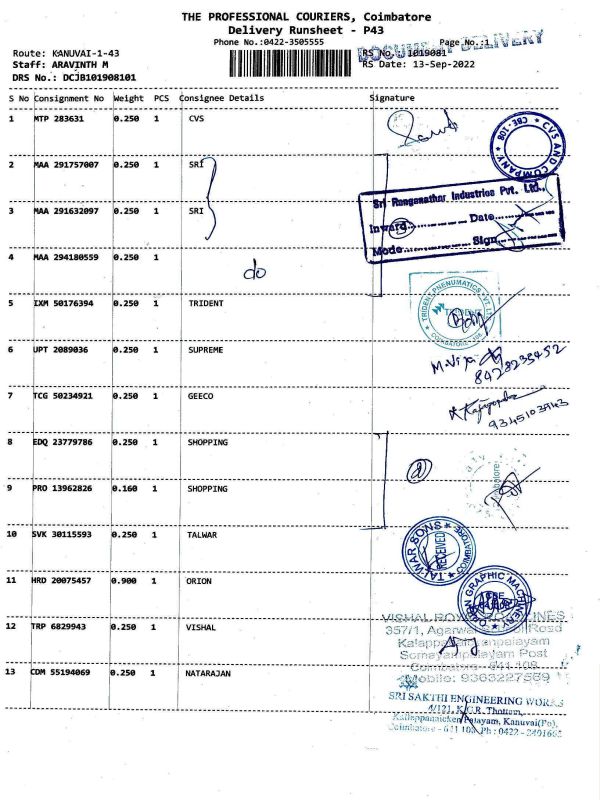 THE PROFESSIONAL COURIERS, Coimbatore
Delivery Runsheet - P43
Phone No.:0422-3505555
Page No.:1
DOCUMENT DELIVERY
Route: KANUVAI-1-43
RS No.: I019081
Staff: ARAVINTH M
RS Date: 13-Sep-2022
DRS No.: DCJB101908101
S No Consignment No Weight PCS Consignee Details Signature
1 MTP 283631 0.250 1 CVS
CVS AND COMPANY * CBE-108 *
2 MAA 291757007 0.250 1 SRI
Sri Ranganathar Industries Pvt. Ltd.,
Inward.............. Date..............
Mode.............. Sign..............
3 MAA 291632097 0.250 1 SRI
4 MAA 294180559 0.250 1
do
5 IXM 50176394 0.250 1 TRIDENT
TRIDENT PNEUMATICS PVT. LTD
6 UPT 2089036 0.250 1 SUPREME
8428233452
7 TCG 50234921 0.250 1 GEECO
9345103943
8 EDQ 23779786 0.250 1 SHOPPING
2
9 PRO 13962826 0.160 1 SHOPPING
10 SVK 30115593 0.250 1 TALWAR
TALWAR SONS * COIMBATORE *
RECEIVED
11 HRD 20075457 0.900 1 ORION
ORION GRAPHIC MACHINERY
12 TRP 6829943 0.250 1 VISHAL
VISHAL
357/1,
Somayampalayam Post
Coimbatore - 641 108
Mobile: 9363227569
13 CDM 55194069 0.250 1 NATARAJAN
SRI SAKTHI ENGINEERING WORKS
4/121, K.G.R. Thottam,
Kalleppanaicken Palayam, Kanuvai(Po),
Coimbatore - 641 108. Ph : 0422 - 2401665